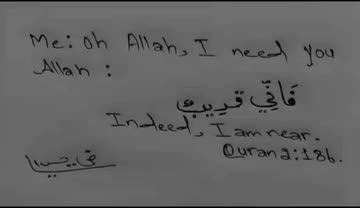 Me: Oh Allah, I need you
Allah :
فَانِّي قَرِيبٌ
Indeed, I am near.
Quran 2:186.